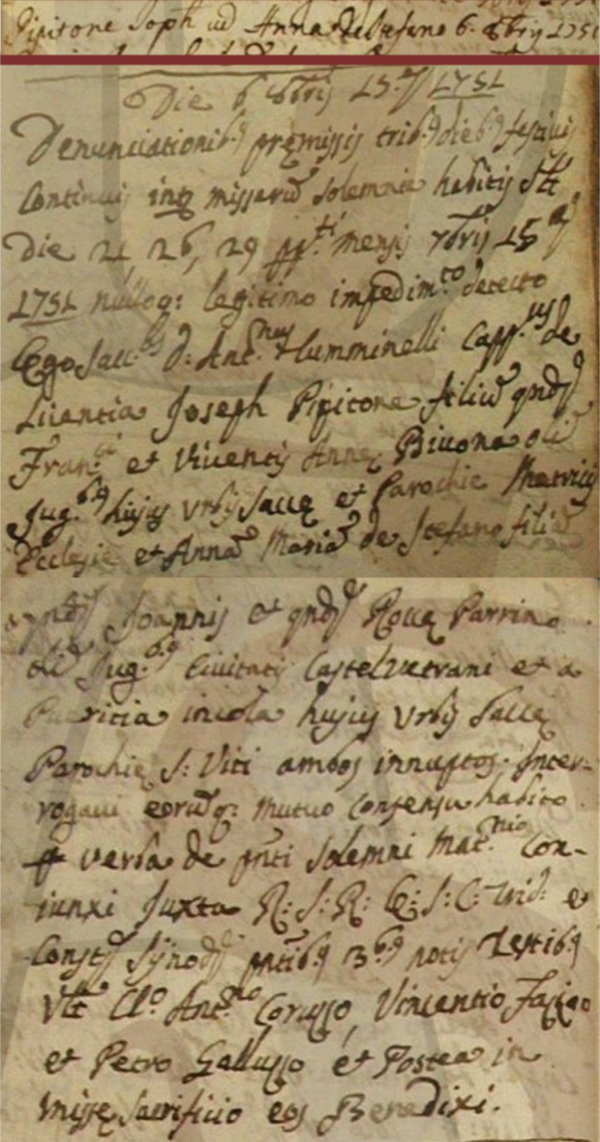 Pipitone Joseph ud Anna de Stefano 6. 8bris 1751
Die 6 8bris 15.e Ind 1751
Denunciationib9 premissis trib9 dieb9 festivis
Continuis inter missarum solemnia habitis Vtt
Die 21 26, 29 pp.ti mensis 7bris 15
1751 nulloq: legitimo impedim.to detecto
Ego Sac. D: Ant.nus Humminelli Capp.nus de
Licentia Joseph Pipitone filiu qndj
Fran.ci et Vicentis Anne Bivona oli
Jug.b9 hujus Vrbis Sacce et Parochie Matricis
Ecclesie et Anna Maria de Stefano filia
qndj Joannis et qndj Rocce Parrino
oli Jug.b9 Civitatis Castelvetrani et a
Pueritia incola hujus Vrbis Sacce
Parochie S: Viti ambos innuptos Inter-
rogavi eoruq: mutuo consensu habito
p verba de pnti solemni mat.nio Con-
iunxi Juxta R: S: R: E: S: C: Trid: et
Constj Synodj pntib9 3b9 notis Testib9
Vtt Clo Ant.no Corusso, Vincentio Fasiao
et Petro Gallusso et Postea in
misse sacrificio eos Benedixi.